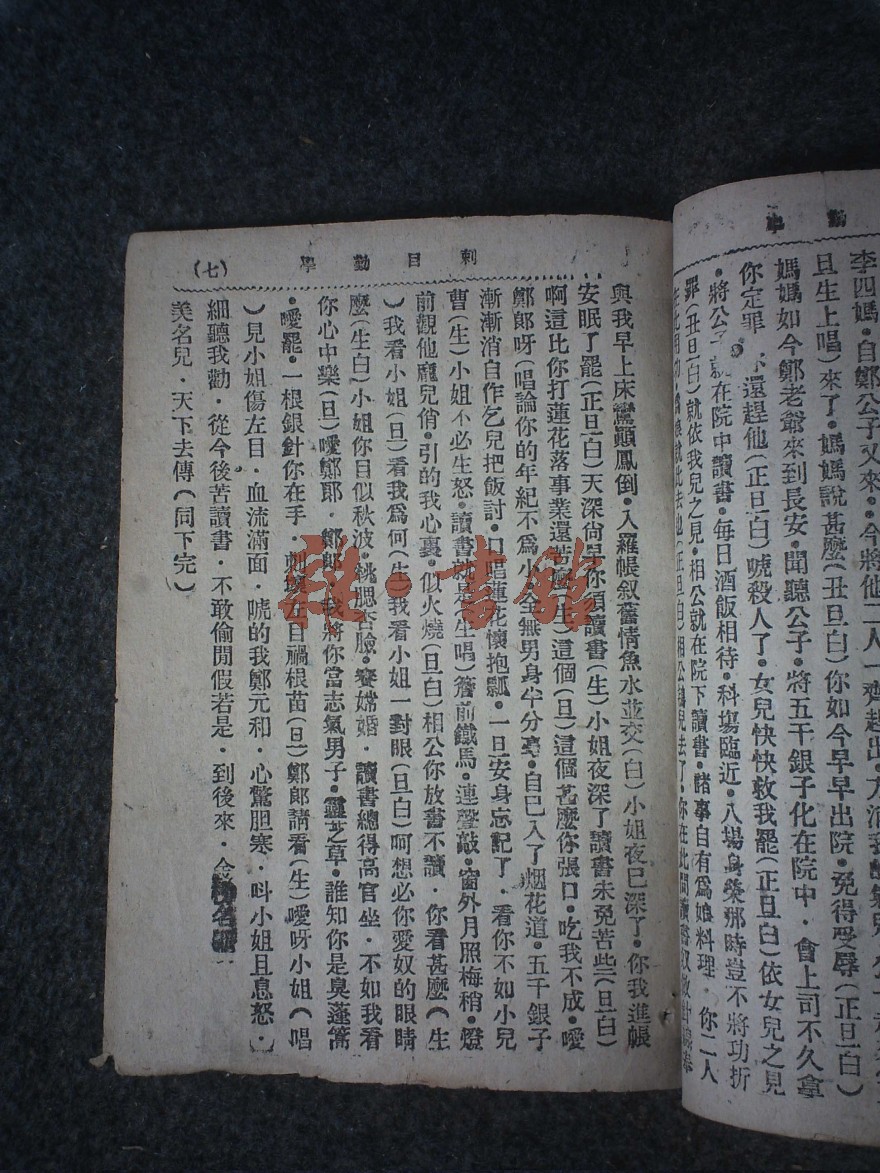 李四媽·自鄭公子又來··今將他二人一齊趕出·
旦生上唱)來了·媽媽說甚麽(丑旦白)你如今早早出院·免得受辱(正旦白)
媽媽如今鄭老爺來到長安·聞聽公子·將五千銀子化在院中·會上司不久拿
你定罪·還趕他(正旦白)唬殺人了·女兒快快救我罷(正旦白)依女兒之見
·將公子就在院中讀書·每日酒飯相待·科塲臨近·入塲身榮那時豈不將功折
罪(丑旦白)就依我兒之見·相公就在院下讀書·諸事自有爲娘料理·你二人
刺目勸學
(七)
與我早上床鸞顚鳳倒·入羅帳叙舊情魚水並交(白)小姐夜已深了·你我進帳
安眠了罷(正旦白)天深尙早你須讀書(生)小姐夜深了讀書未免苦些(旦白)
啊這比你打蓮花落事業還苦麽(生)這個(旦)這個甚麽你張口·吃我不成·噯
鄭郎呀(唱論你的年紀不爲小全無男身半分毫·自已入了烟花道·五千銀子
漸漸消自作乞兒把飯討·口唱蓮花懷抱瓢·一旦安身忘記了·看你不如小兒
曹(生)小姐不必生怒·讀書就是(生唱)簷前鐵馬·連聲敲·窗外月照梅稍·燈
前觀他龐兒俏·引的我心裏·似火燒(旦白)相公你放書不讀·你看甚麽(生
)我看小姐(旦)看我爲何(生)我看小姐一對眼(旦白)呵想必你愛奴的眼睛
麽(生白)小姐你目似秋波·桃腮杏臉·賽嫦婚·讀書總得高官坐·不如我看
你心中樂(旦)噯鄭郎·鄭郎·我將你當志氣男子·靈芝草·誰知你是臭蓬蒿
·噯罷·一根銀針你在手·刺壞左目禍根苗(旦)鄭郎請看(生)噯呀小姐(唱
)見小姐傷左目·血流滿面·唬的我鄭元和·心驚胆寒·叫小姐且息怒·
細聽我勸·從今後苦讀書·不敢偷閒假若是·到後來·金榜名
美名兒·天下去傳(同下完)